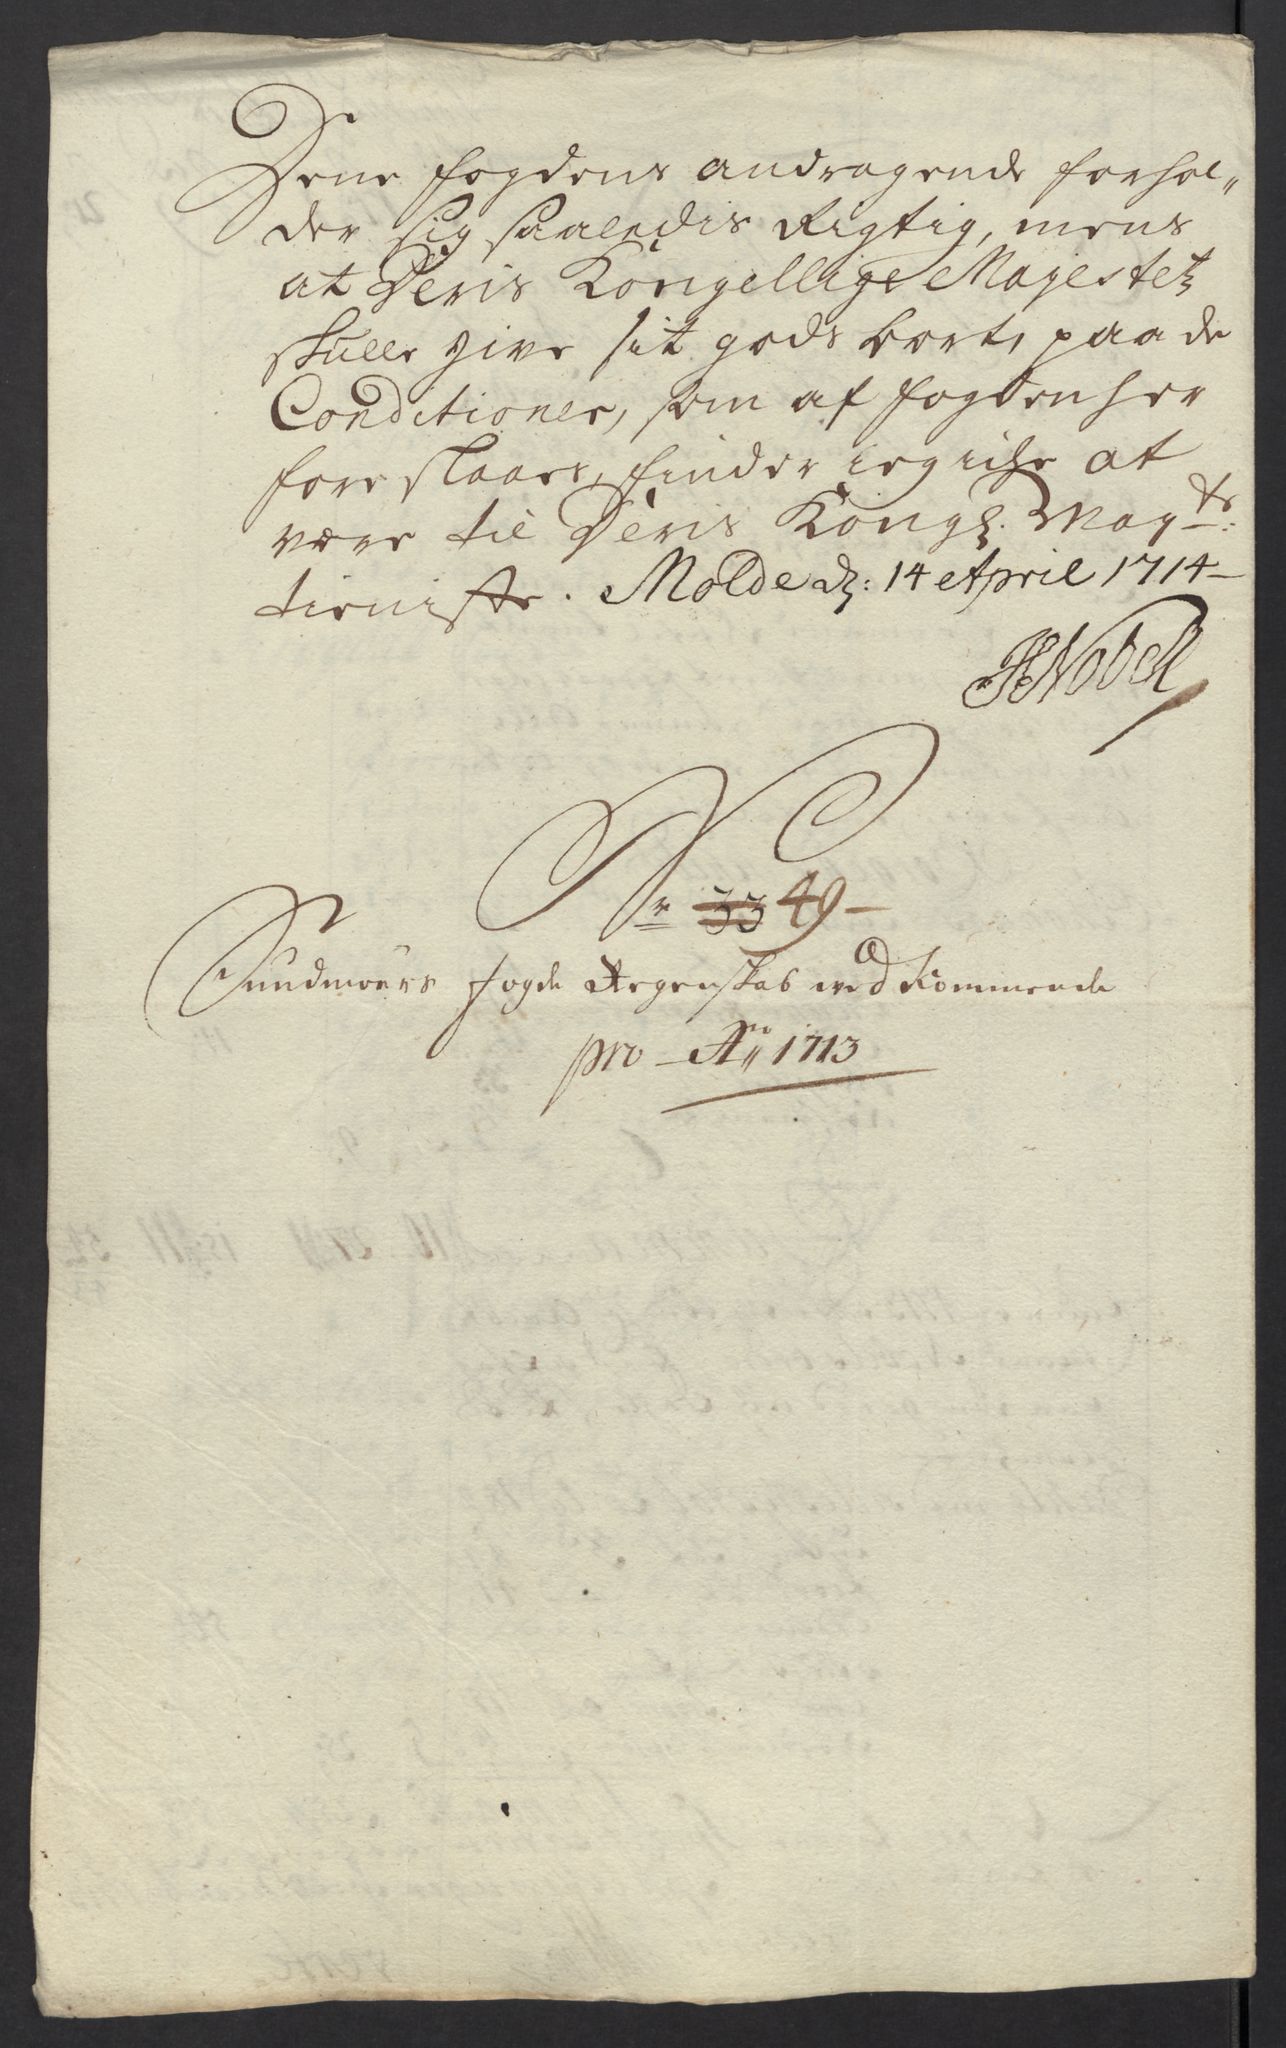 Dene fogdens andragende forhol„
der sig saaledis Rigtig, mens
at Deris Kongellige Majestetz
skulle give sit gods bort, paa de
Conditioner, som af fogden her
foreslaaes, finder ieg iche at
være til Deris Kongl. May-ts:
tieniste. Molde d: 14 April 1714-
HNobell
Nr 33 49-
Sundmøers fogde Regenskab ved kommende
pro - Ao 1713